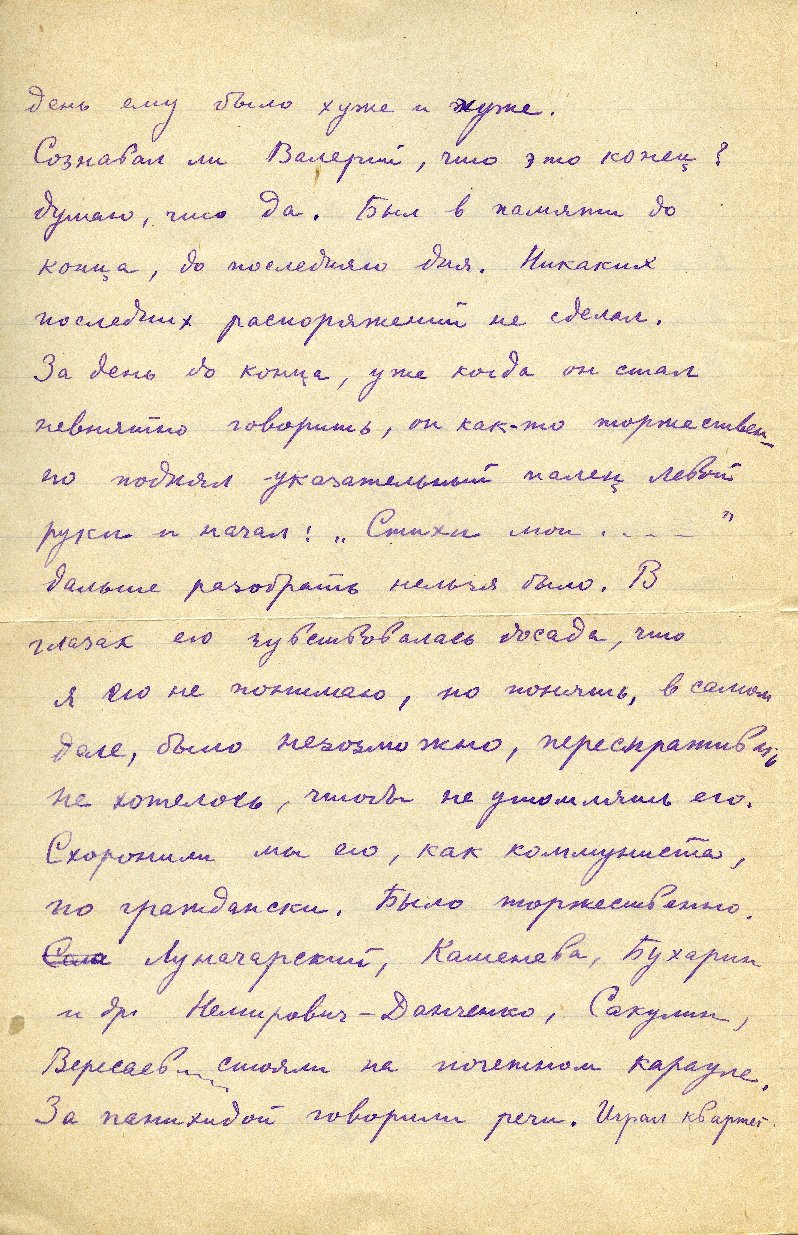 день ему было хуже и хуже.
Сознавал ли Валерий, что это конец?
думаю, что да. Был в памяти до
конца, до последняго дня. Никаких
последних распоряжений не сделал.
За день до конца, уже когда он стал
невнятно говорить, он как-то торжествен-
но поднял указательный палец левой
руки и начал: „Стихи мои . . . – "
дальше разобрать нельзя было. В
глазах его чувствовалась досада, что
я его не понимаю, но понять, в самом
деле, было невозможно, переспрашивать
не хотелось, чтобы не утомлять его.
Схоронили мы его, как коммуниста,
по граждански. Было торжественно.
Луначарский, Каменева, Бухарин
и др. Немирович-Данченко, Сакулин,
Вересаев.... стояли на почетном карауле.
За панихидой говорили речи. Играл квартет.